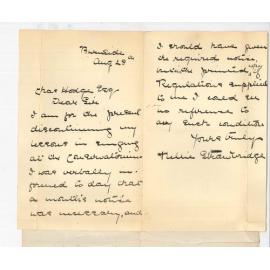 Burnside
Aug 23rd
Chas Hodge Esq
Dear Sir
I am for the present
discontinuing my
lessons in singing
at the Conservatorium
I was verbally in-
formed to day that
a month's notice
was necessary, and
I should have given
the required notice,
in the printed
Regulations supplied
to me I could see
no reference to
any such condition
Yours truly